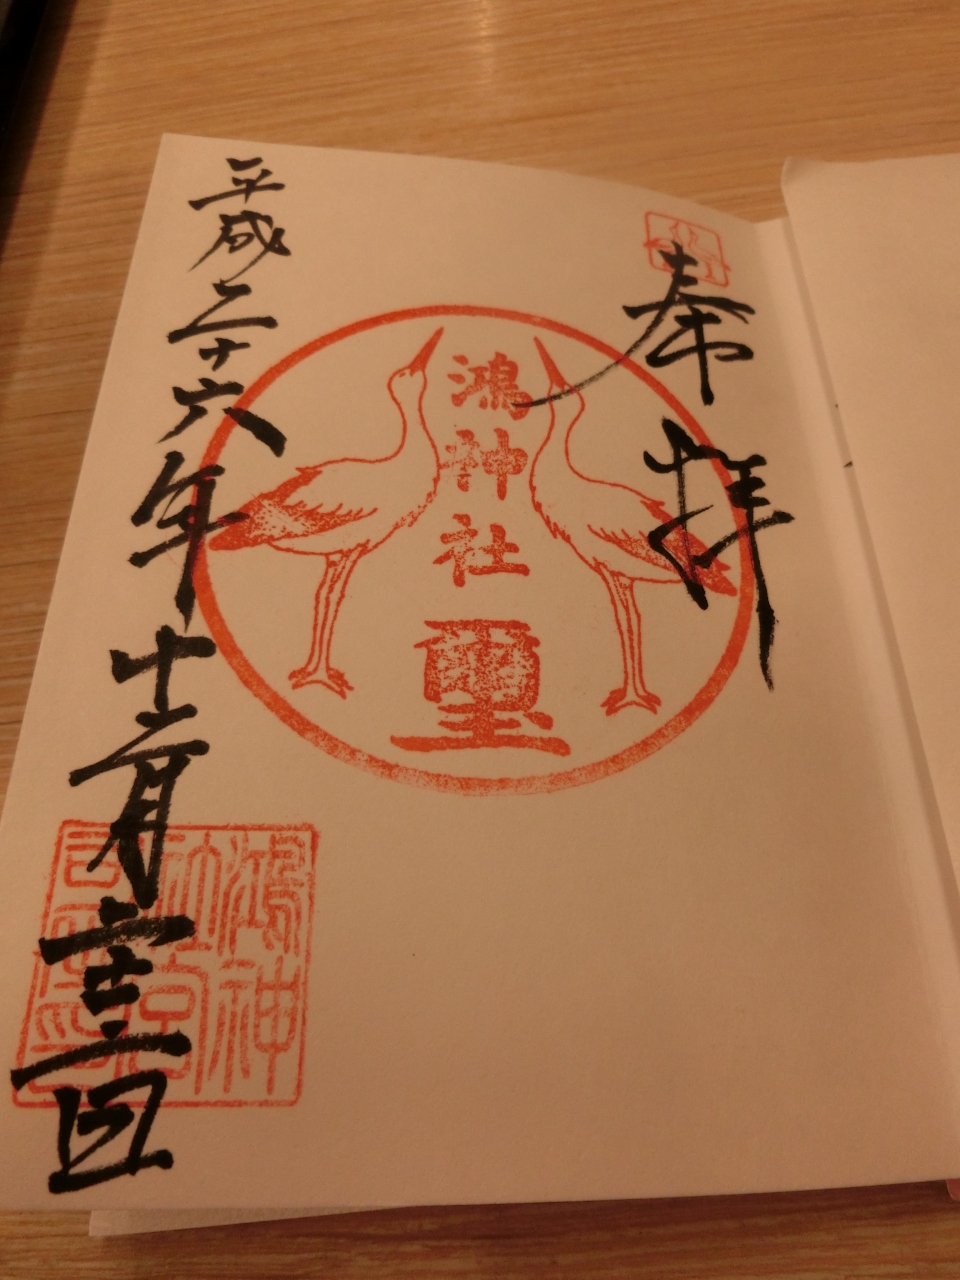 奉拝
鴻神社
璽
平成二十六年十二月二十三日
鴻神
社宮
司之印